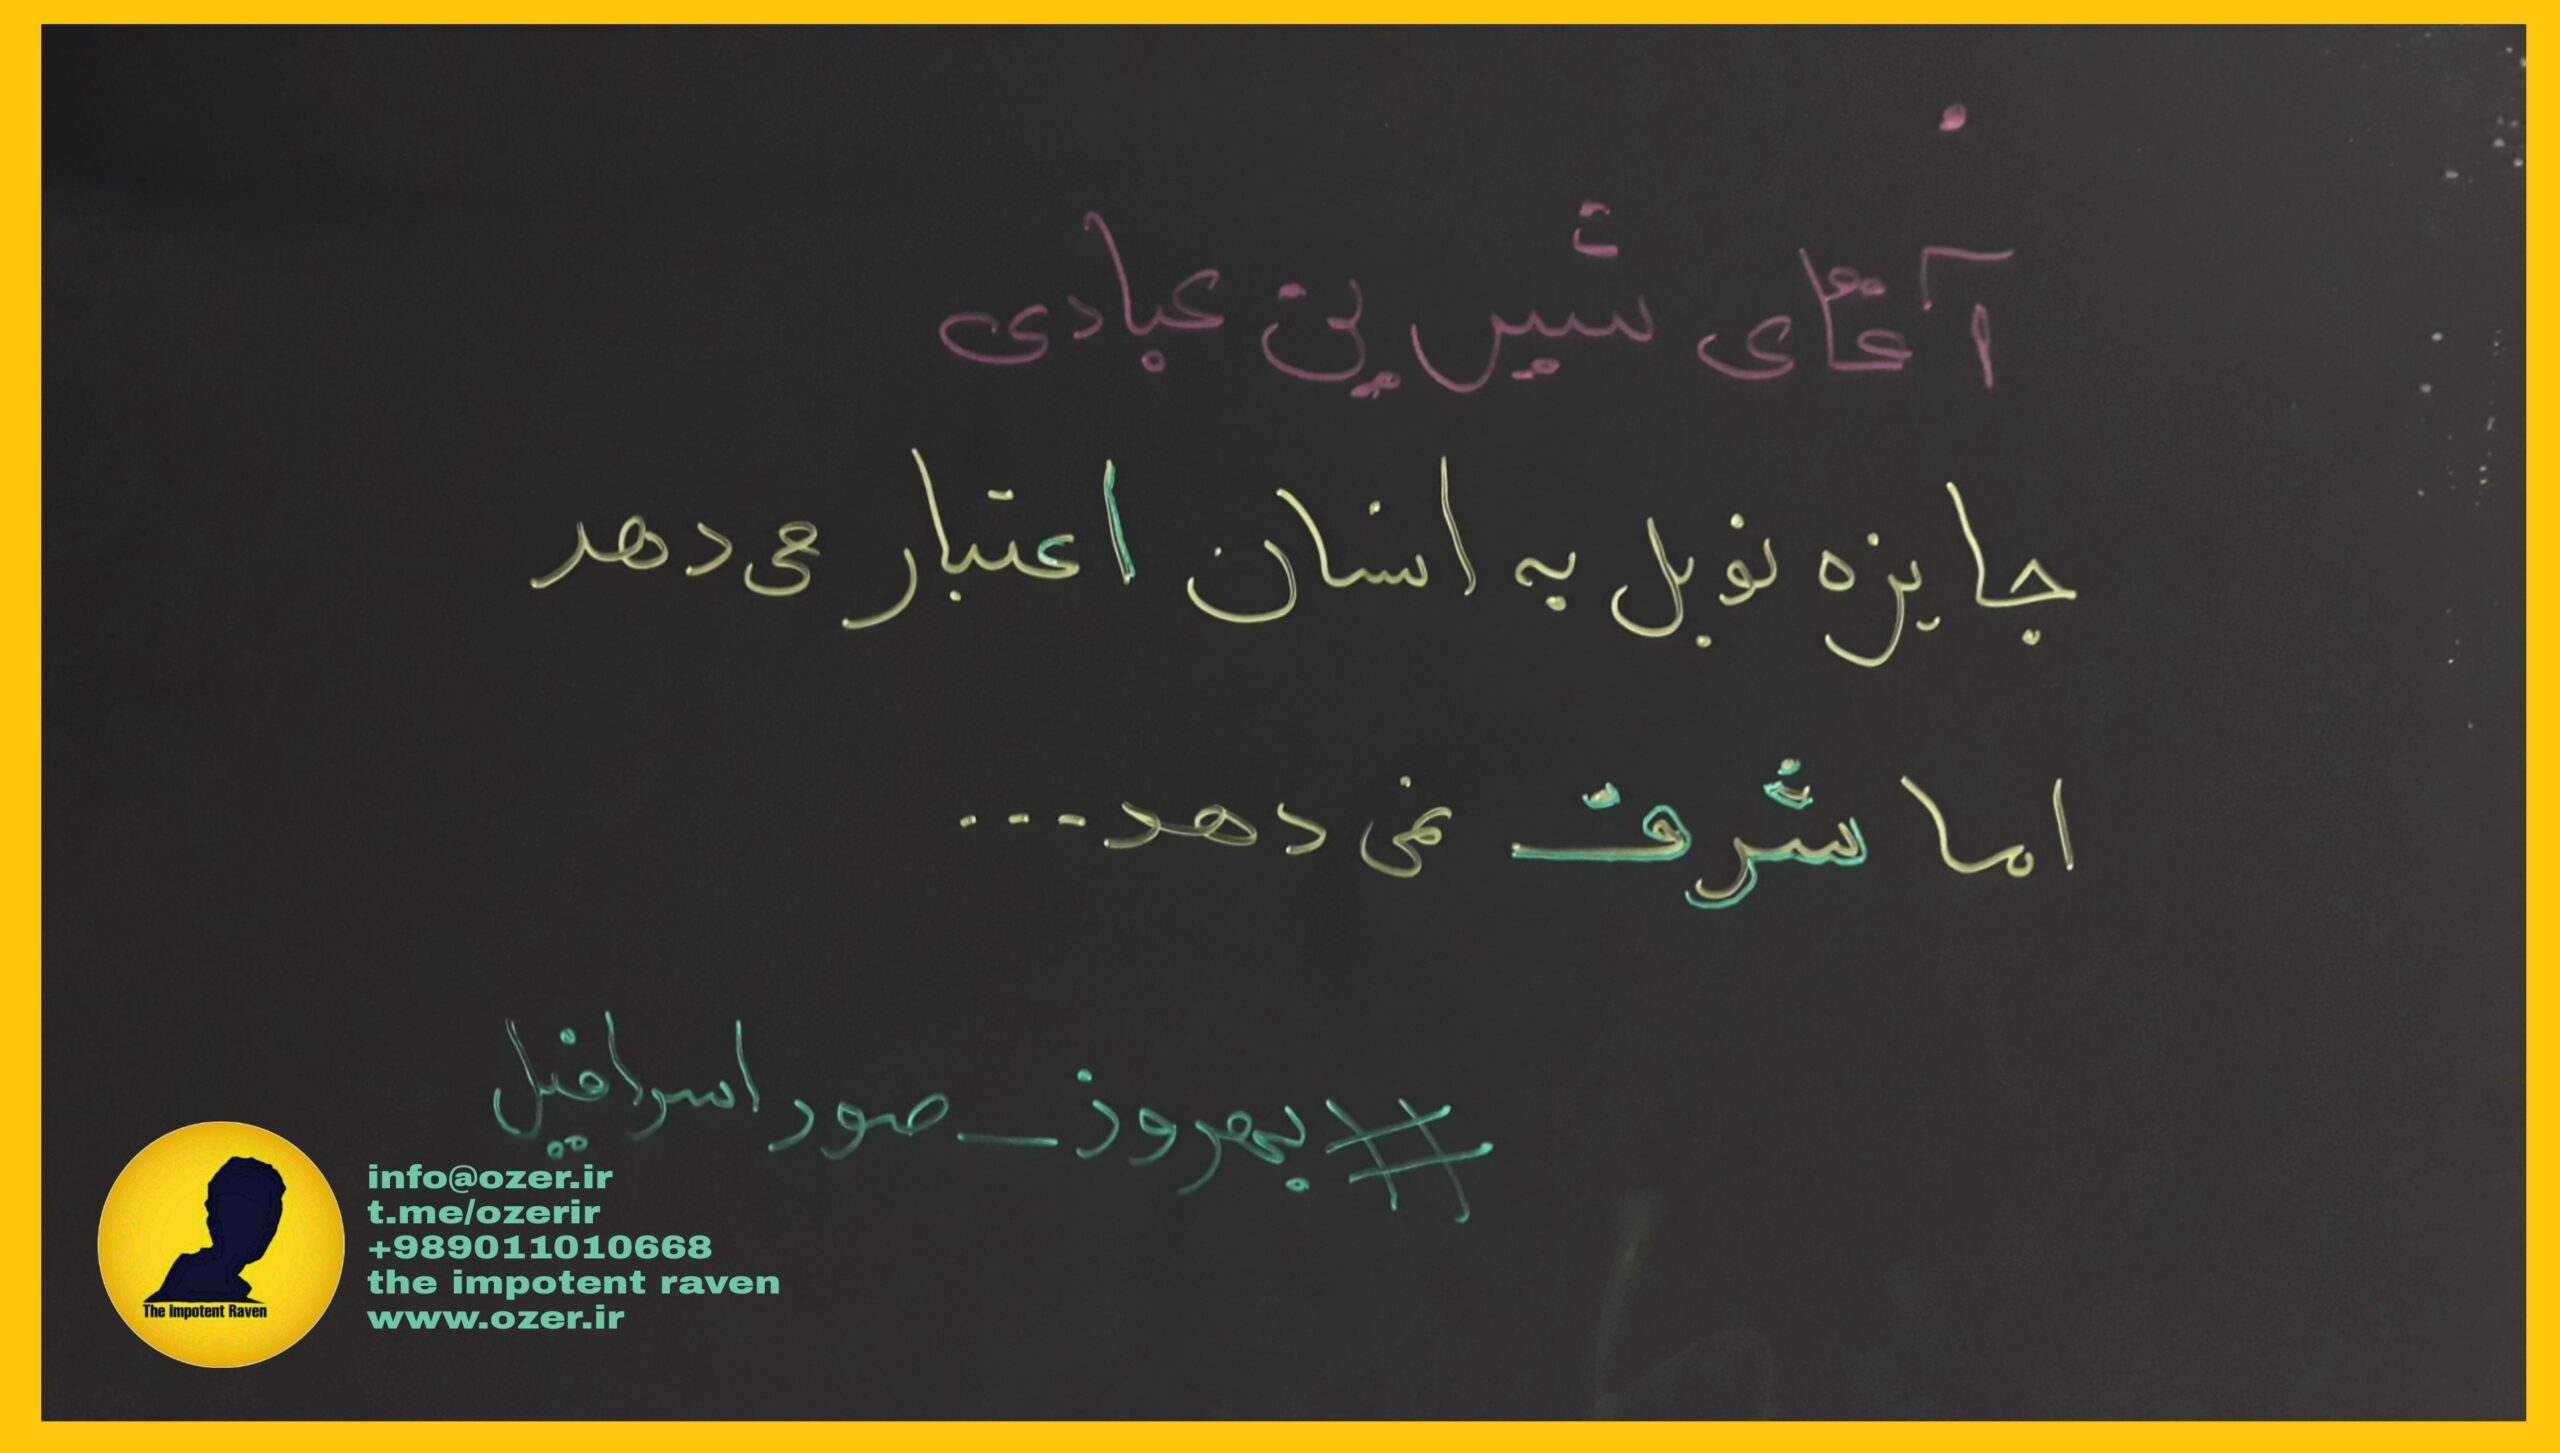 آقای شیرین عبادی
جایزه نوبل به انسان اعتبار می‌دهد
اما شرف نمی‌دهد...
#بهروز_صوراسرافیل
The Impotent Raven
info@ozer.ir
t.me/ozerir
+989011010668
the impotent raven
www.ozer.ir